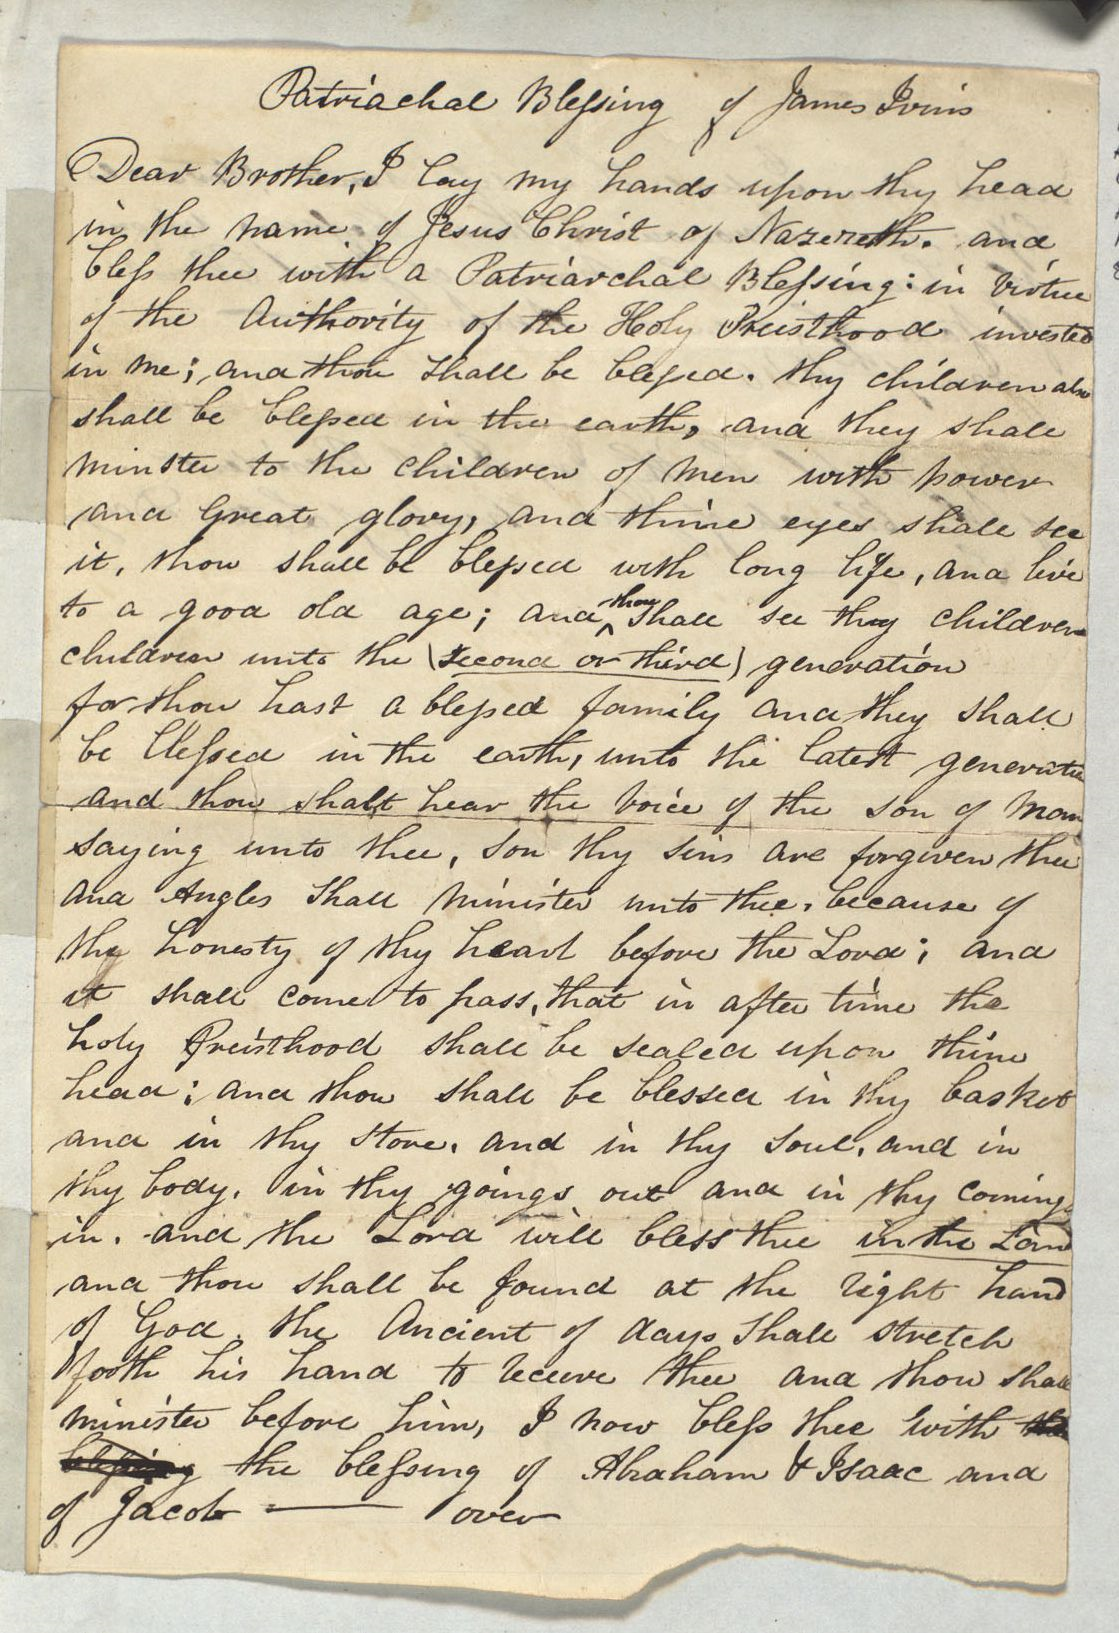 Patriachal Blessing of James Ivins
Dear Brother, I lay my hands upon thy head
in the name of Jesus Christ of Nazereth. and
bless thee with a Patriarchal Blessing: in virtue
of the Authority of the Holy Preisthood invested
in me; and thou shall be blessed. thy children also
shall be blessed in the earth, and they shall
minster to the children of men with power
and Great glory, and thine eyes shall see
it, thou shall be blessed with long life, and live
to a good old age; and thou shall see thy children
children unto the (second or third) generation
for thou hast a blessed family and they shall
be blessed in the earth, unto the latest generation
and thou shalt hear the voice of the son of man
saying unto thee, son thy sins are forgiven thee
and Angles shall minister unto thee, because of
the honesty of thy heart before the Lord; and
it shall come to pass, that in after time the
holy Preisthood shall be sealed upon thine
head; and thou shall be blessed in thy basket
and in thy store. and in thy soul, and in
thy body. in thy goings out and in thy coming
in. and the Lord will bless thee in the Land
and thou shall be found at the right hand
of God. the Ancient of days shall stretch
footh his hand to receive thee and thou shall
minister before him, I now bless thee with the
blessing the blessing of Abraham & Isaac and
of Jacob —— over